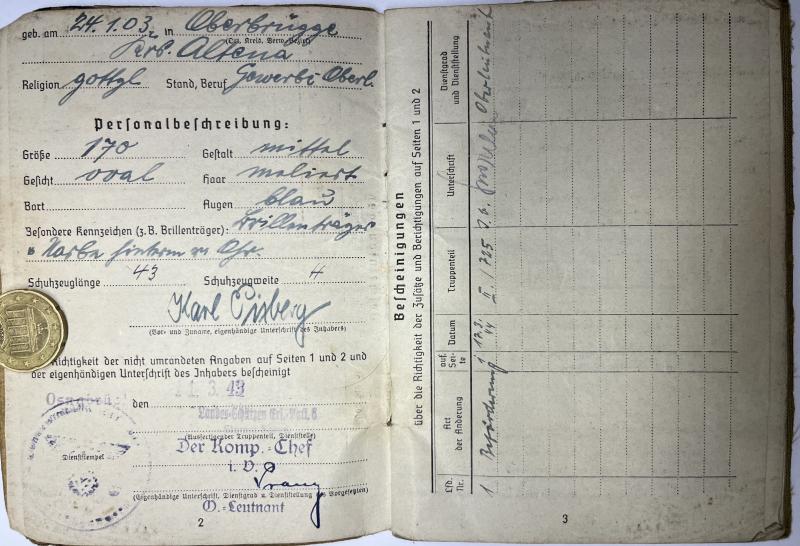 geb. am 24.1.03. in Oberbrügge
(Ort, Kreis, Verw.-Bezirk)
Krs. Altena
Religion gottgl. Stand, Beruf Gewerbe Oberl.
Personalbeschreibung:
Größe 170 Gestalt mittel
Gesicht oval Haar meliert
Bart Augen blau
Besondere Kennzeichen (z.B. Brillenträger): Brillenträger
Narbe hinterm r. Ohr.
Schuhzeuglänge 43 Schuhzeugweite 4
Karl
(Vor- und Zuname, eigenhändige Unterschrift des Inhabers)
Richtigkeit der nicht umrandeten Angaben auf Seiten 1 und 2 und
der eigenhändigen Unterschrift des Inhabers bescheinigt
Osnabrück den 3. 43
Landes-Schützen Ers.-Batl. 6
(Ausfertigender Truppenteil, Dienststelle)
Der Komp.-Chef
Dienststempel
i.V.
(Eigenhändige Unterschrift, Dienstgrad u. Dienststellung des Vorgesetzten)
O.-Leutnant
2
Bescheinigungen
über die Richtigkeit der Zusätze und Berichtigungen auf Seiten 1 und 2
Lfd. Nr.
Art der Änderung
auf Seite
Datum
Truppenteil
Unterschrift
Dienstgrad und Dienststellung
1 Beförderung 1 17.3. 44 II./725 Oberleutnant
3